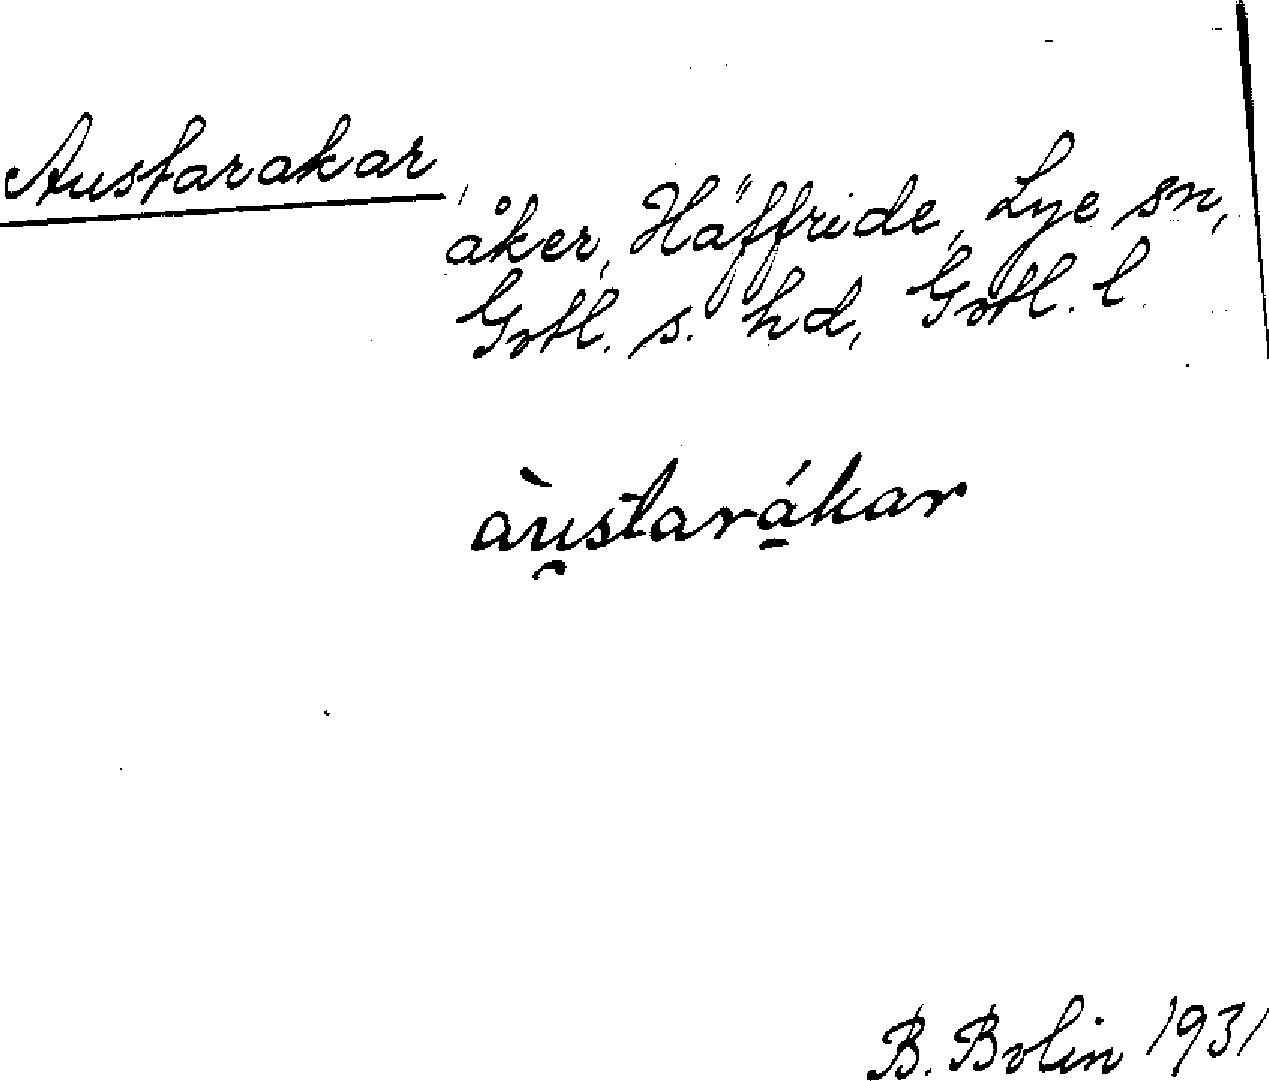 Austarakar,
åker, Häffride, Lye sn,
Gotl. s. hd, Gotl. l.
àu̯stará̱kar
B. Bolin 1931